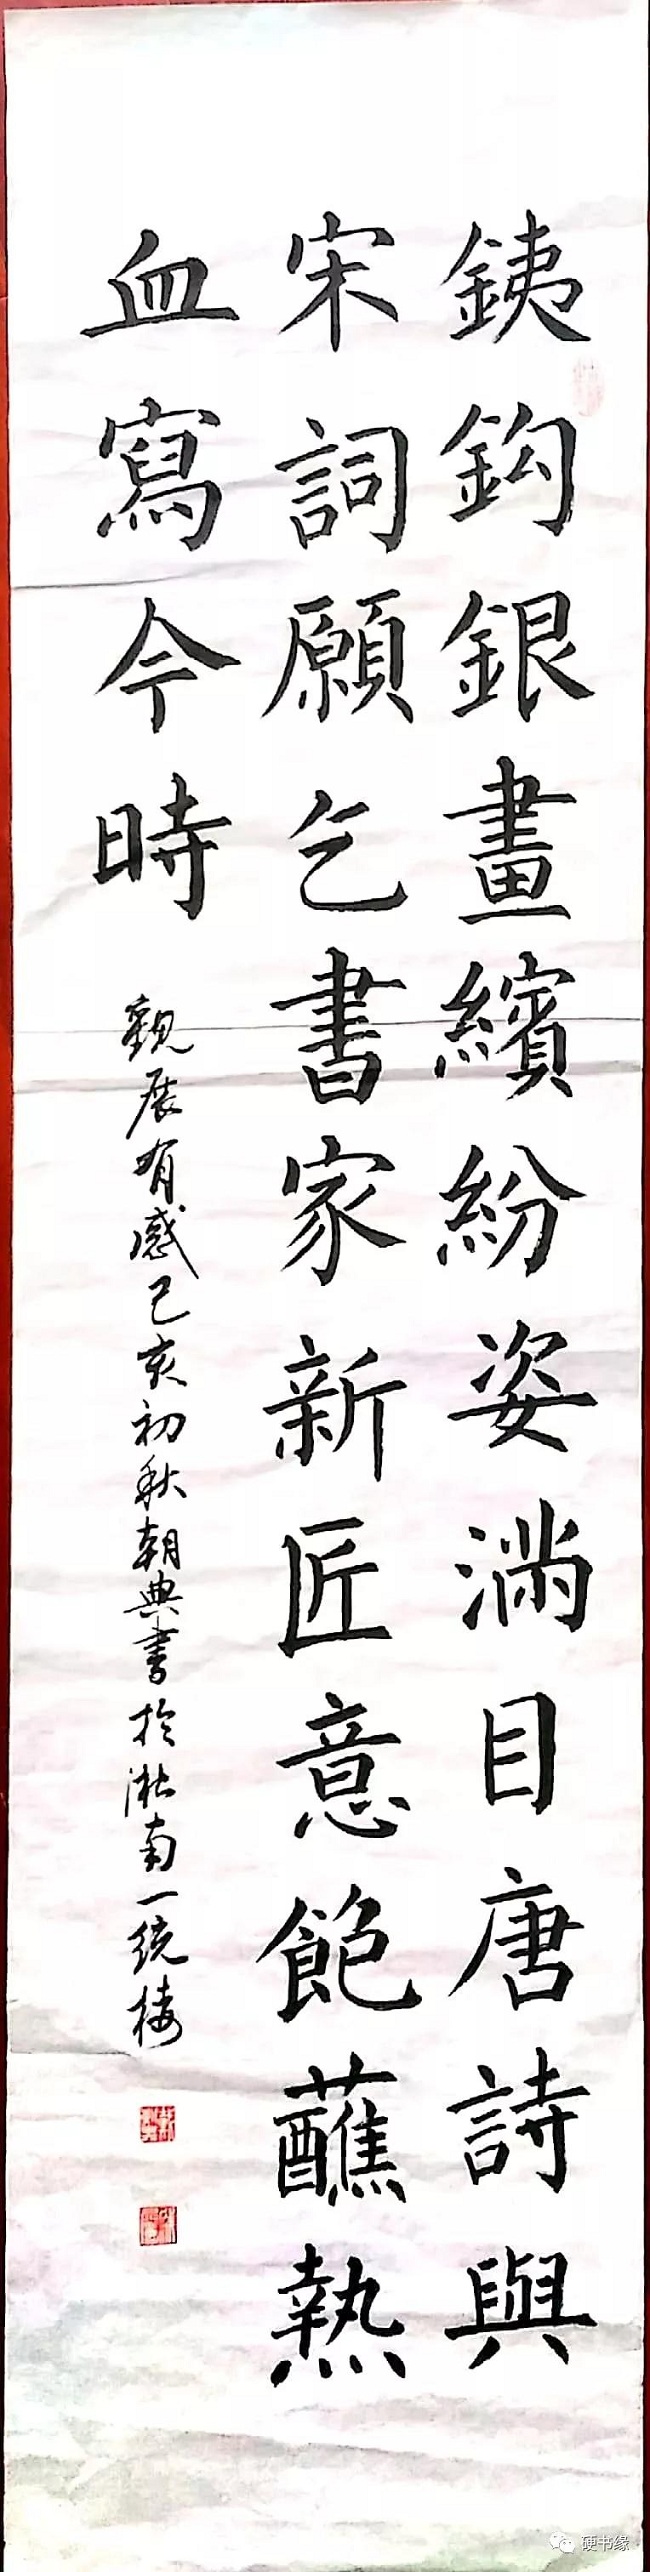 銕鈎銀畫繽紛姿滿目唐詩與
宋詞願乞書家新匠意飽蘸熱
血寫今時
觀展有感己亥初秋朝典書於淞南一統樓
硬书缘